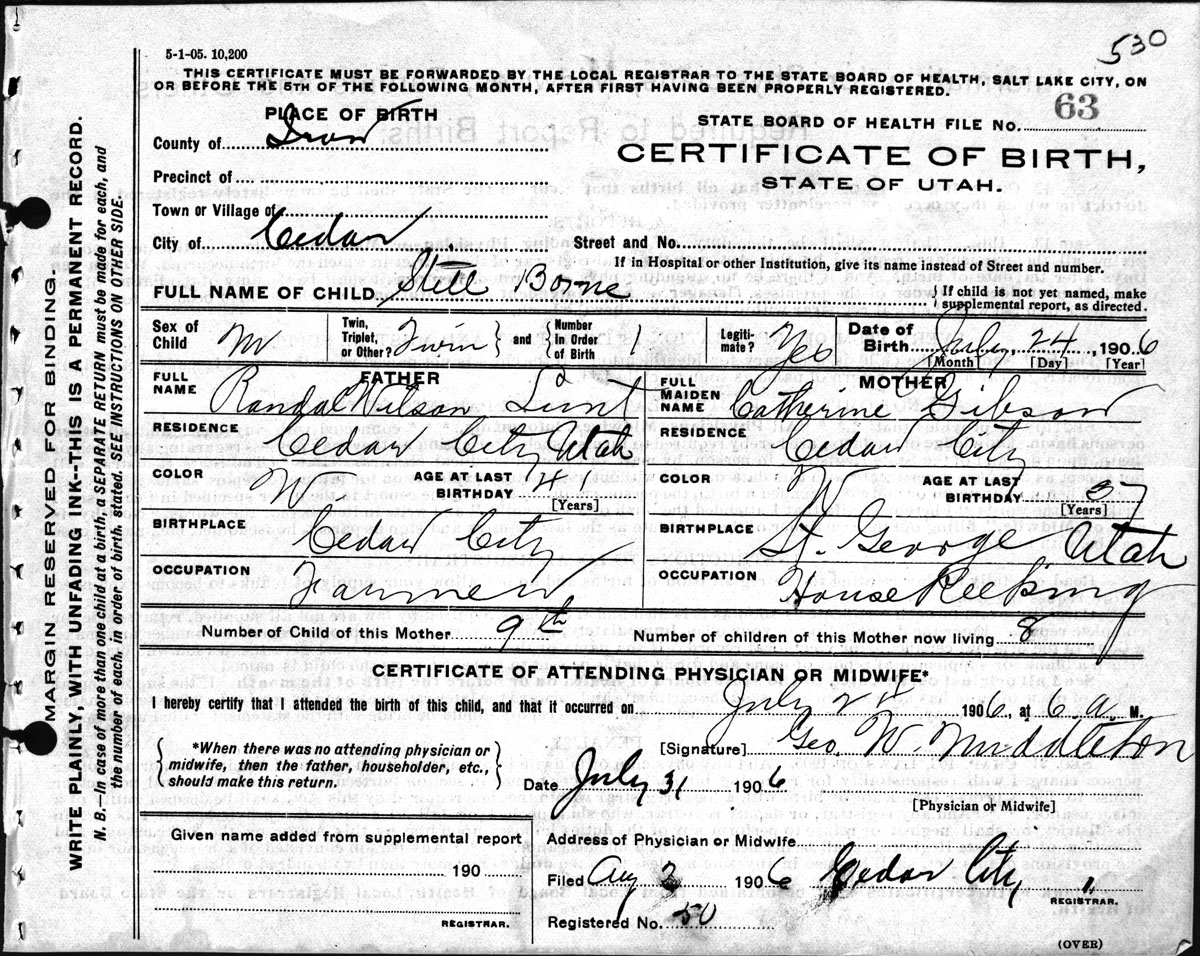 530
5-1-05. 10,200
THIS CERTIFICATE MUST BE FORWARDED BY THE LOCAL REGISTRAR TO THE STATE BOARD OF HEALTH, SALT LAKE CITY, ON
OR BEFORE THE 5TH OF THE FOLLOWING MONTH, AFTER FIRST HAVING BEEN PROPERLY REGISTERED.
PLACE OF BIRTH
County of Iron
Precinct of
Town or Village of
City of Cedar
STATE BOARD OF HEALTH FILE No. 63
CERTIFICATE OF BIRTH,
STATE OF UTAH.
Street and No.
If in Hospital or other Institution, give its name instead of Street and number.
FULL NAME OF CHILD Still Borne
If child is not yet named, make
supplemental report, as directed.
Sex of Child M
Twin, Triplet, or Other? Twin and Number In Order of Birth 1
Legiti-mate? Yes
Date of Birth July 24, 1906
[Month] [Day] [Year]
FATHER
FULL NAME Randal Wilson Lunt
RESIDENCE Cedar City Utah
COLOR W AGE AT LAST BIRTHDAY 41
[Years]
BIRTHPLACE Cedar City
OCCUPATION Farmer
MOTHER
FULL MAIDEN NAME Catherine Gibson
RESIDENCE Cedar City
COLOR W AGE AT LAST BIRTHDAY 37
[Years]
BIRTHPLACE St. George Utah
OCCUPATION House Keeping
Number of Child of this Mother 9th Number of children of this Mother now living 8
CERTIFICATE OF ATTENDING PHYSICIAN OR MIDWIFE*
I hereby certify that I attended the birth of this child, and that it occurred on July 24 1906, at 6 a. M.
*When there was no attending physician or
midwife, then the father, householder, etc.,
should make this return.
[Signature] Geo W. Middleton
Date July 31 1906
[Physician or Midwife]
Given name added from supplemental report
190
REGISTRAR.
Address of Physician or Midwife
Filed Aug 1906 Cedar City
REGISTRAR.
Registered No. 50
(OVER)
MARGIN RESERVED FOR BINDING.
WRITE PLAINLY, WITH UNFADING INK--THIS IS A PERMANENT RECORD.
N. B.--In case of more than one child at a birth, a SEPARATE RETURN must be made for each, and
the number of each, in order of birth, stated. SEE INSTRUCTIONS ON OTHER SIDE.